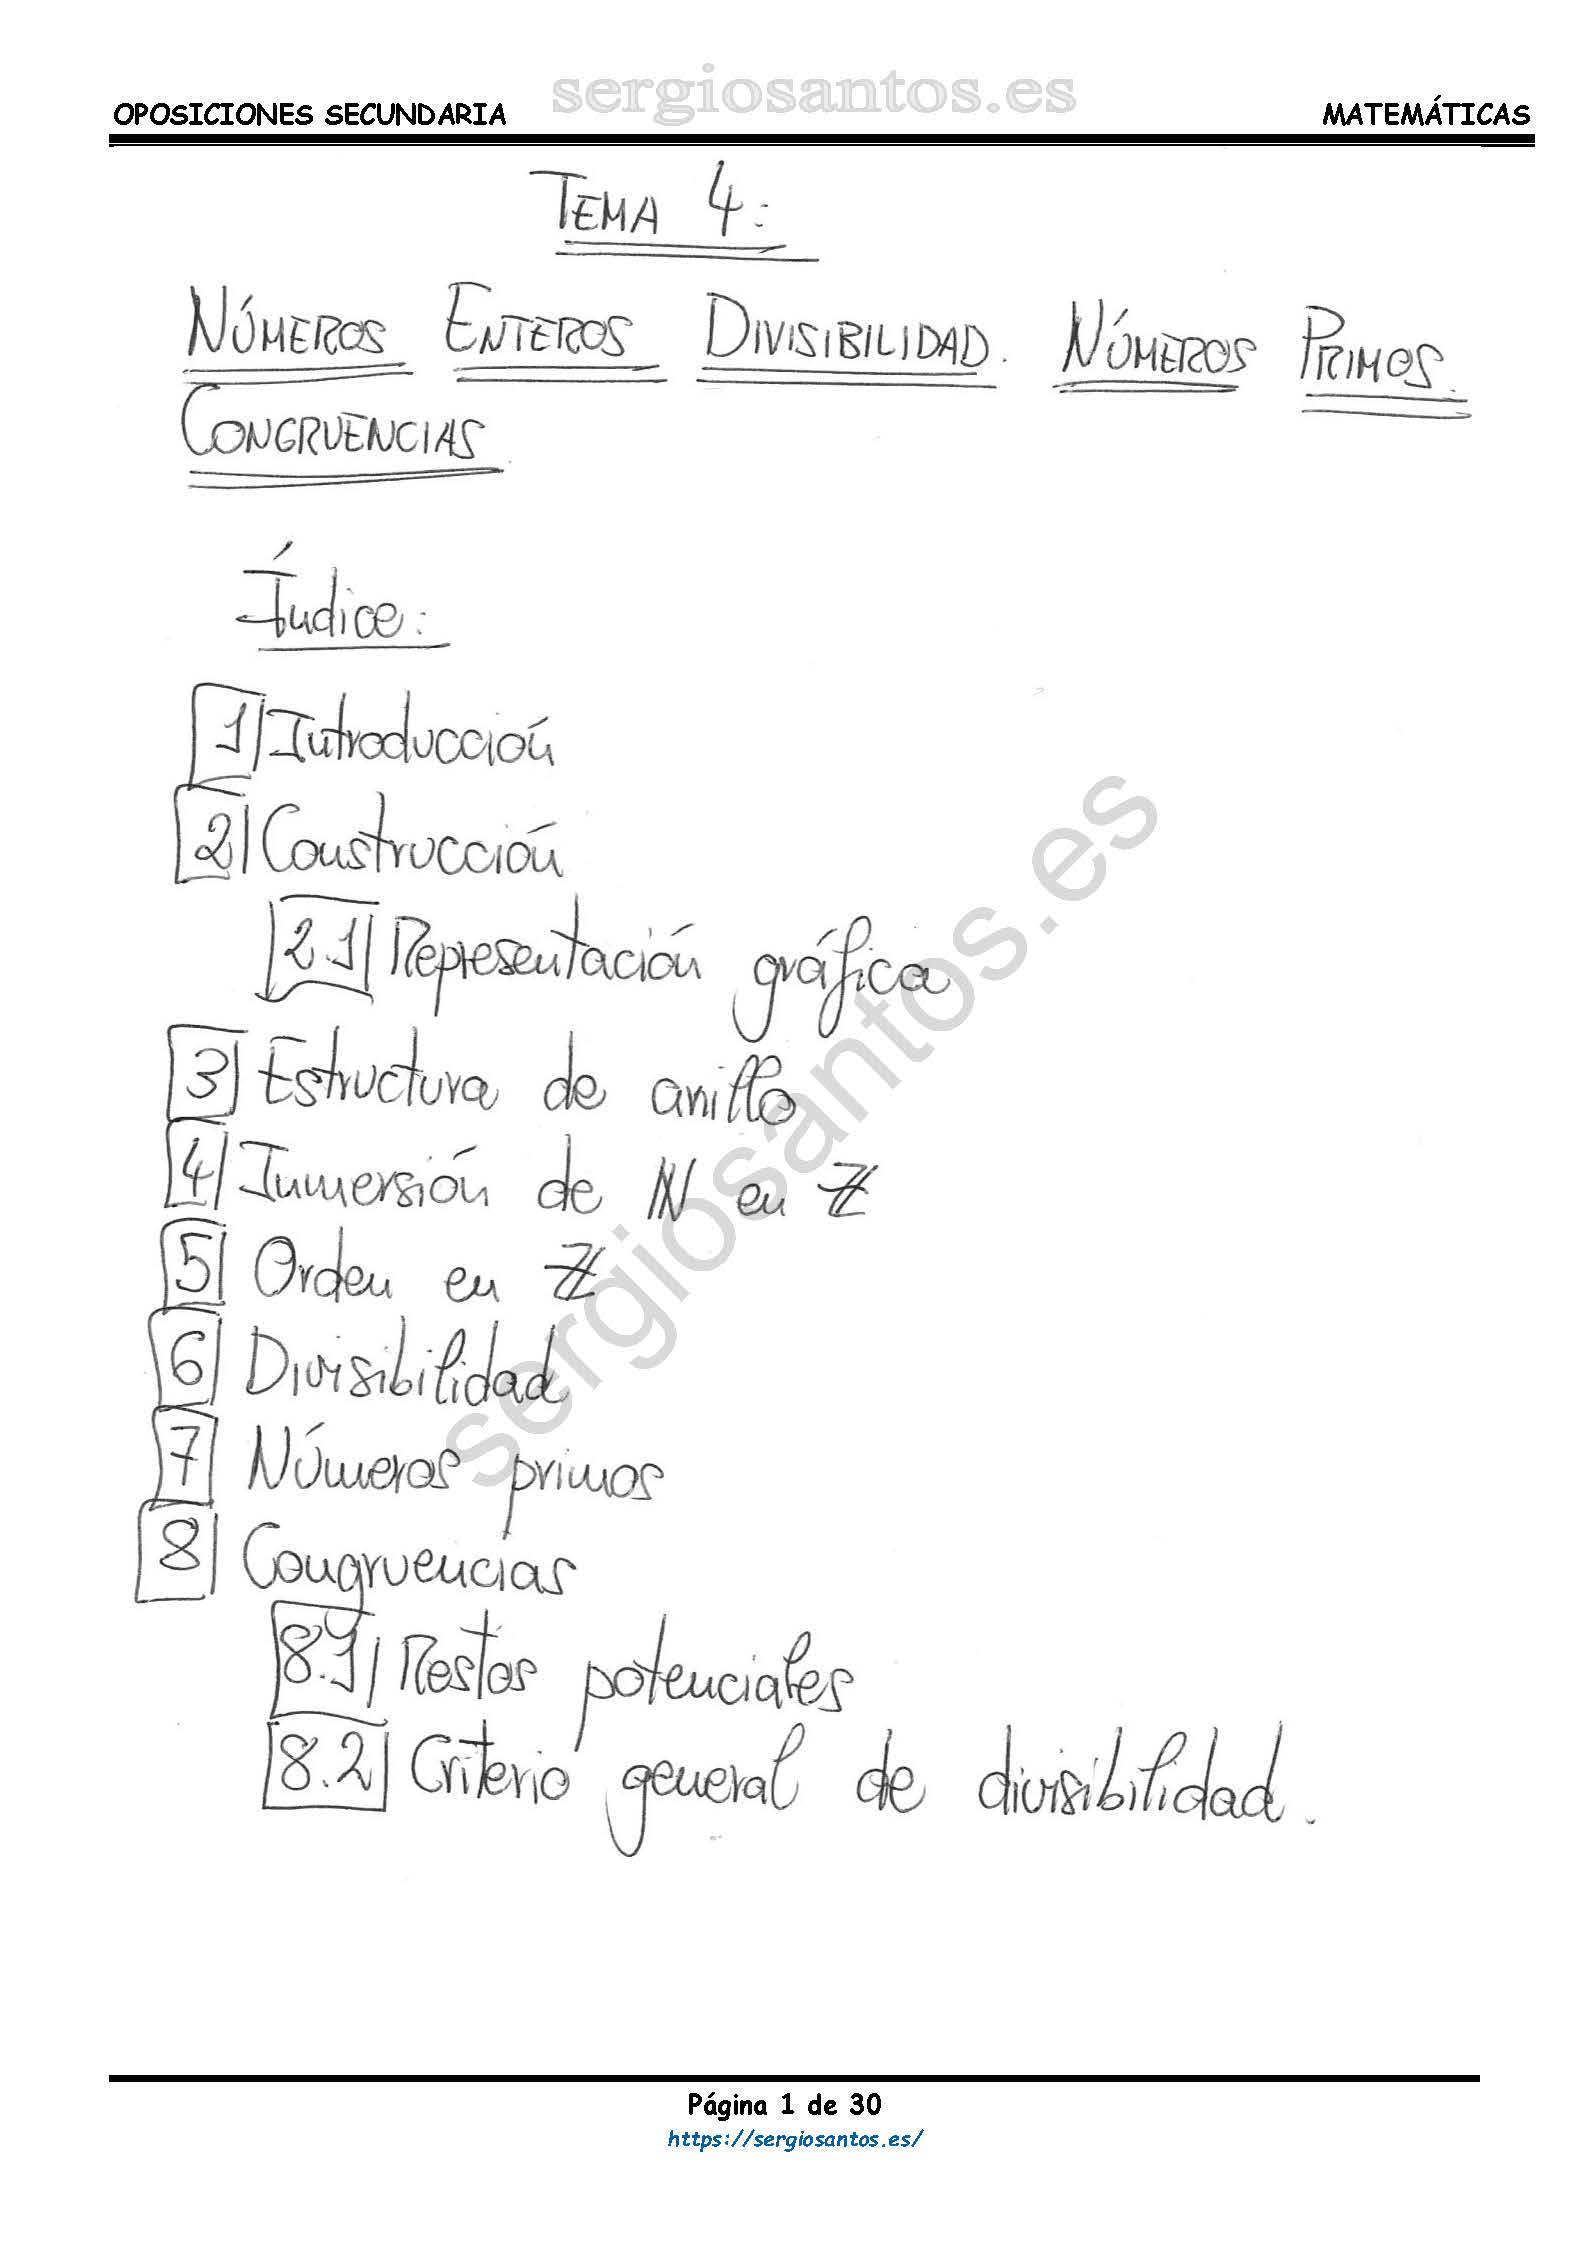 sergiosantos.es
OPOSICIONES SECUNDARIA MATEMÁTICAS
TEMA 4:
NÚMEROS ENTEROS DIVISIBILIDAD. NÚMEROS PRIMOS.
CONGRUENCIAS.
Índice:
1 Introducción
2 Construcción
2.1 Representación gráfica
3 Estructura de anillo
4 Inmersión de ℕ en ℤ
5 Orden en ℤ
6 Divisibilidad
7 Números primos
8 Congruencias
8.1 Restos potenciales
8.2 Criterio general de divisibilidad.
sergiosantos.es
Página 1 de 30
https://sergiosantos.es/